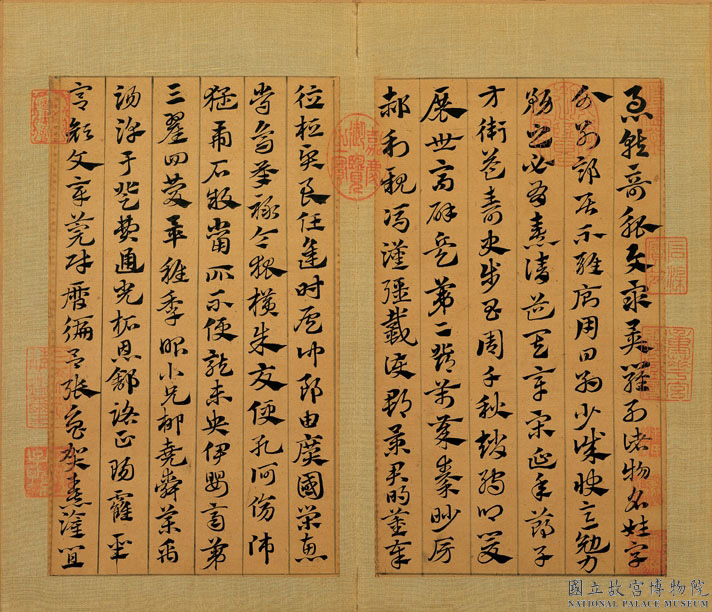 急就奇觚與衆異羅列諸物名姓字
分別部居不雜廁用日約少誠快意勉力
務之必有憙請道其章宋延年鄭子
方衛益壽史步昌周千秋趙孺卿爰
展世高辟兵第二鄧萬歲秦眇房
郝利親馮漢彊戴護郡景君明董奉
德桓賢良任逢時侯仲郎由廣國榮惠
常烏承祿令狐橫朱交便孔何傷師
猛虎石敢當所不侵龍未央伊嬰齊第
三翟回慶畢稚季昭小兄柳堯舜藥禹
湯淳于登費通光柘恩舒路正陽霍聖
宮顏文章莞財歷偏呂張魚賀憙灌宜
國立故宮博物院
NATIONAL PALACE MUSEUM